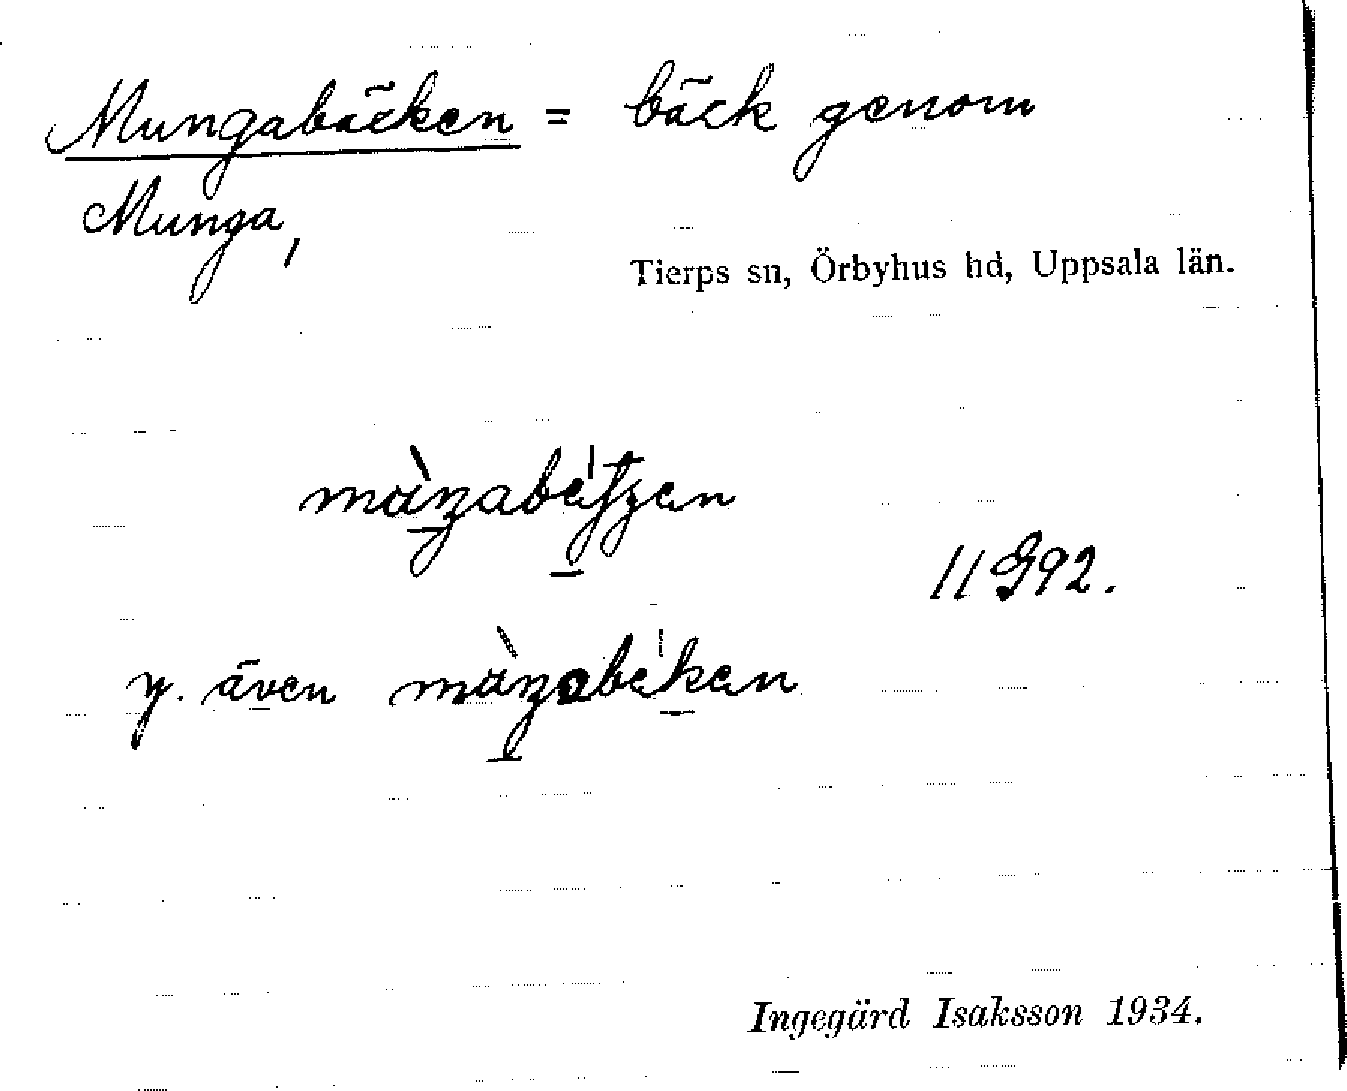 Mungabäcken = bäck genom
Munga,
Tierps sn, Örbyhus hd, Uppsala län.
11G92.
y. även
Ingegärd Isaksson 1934.